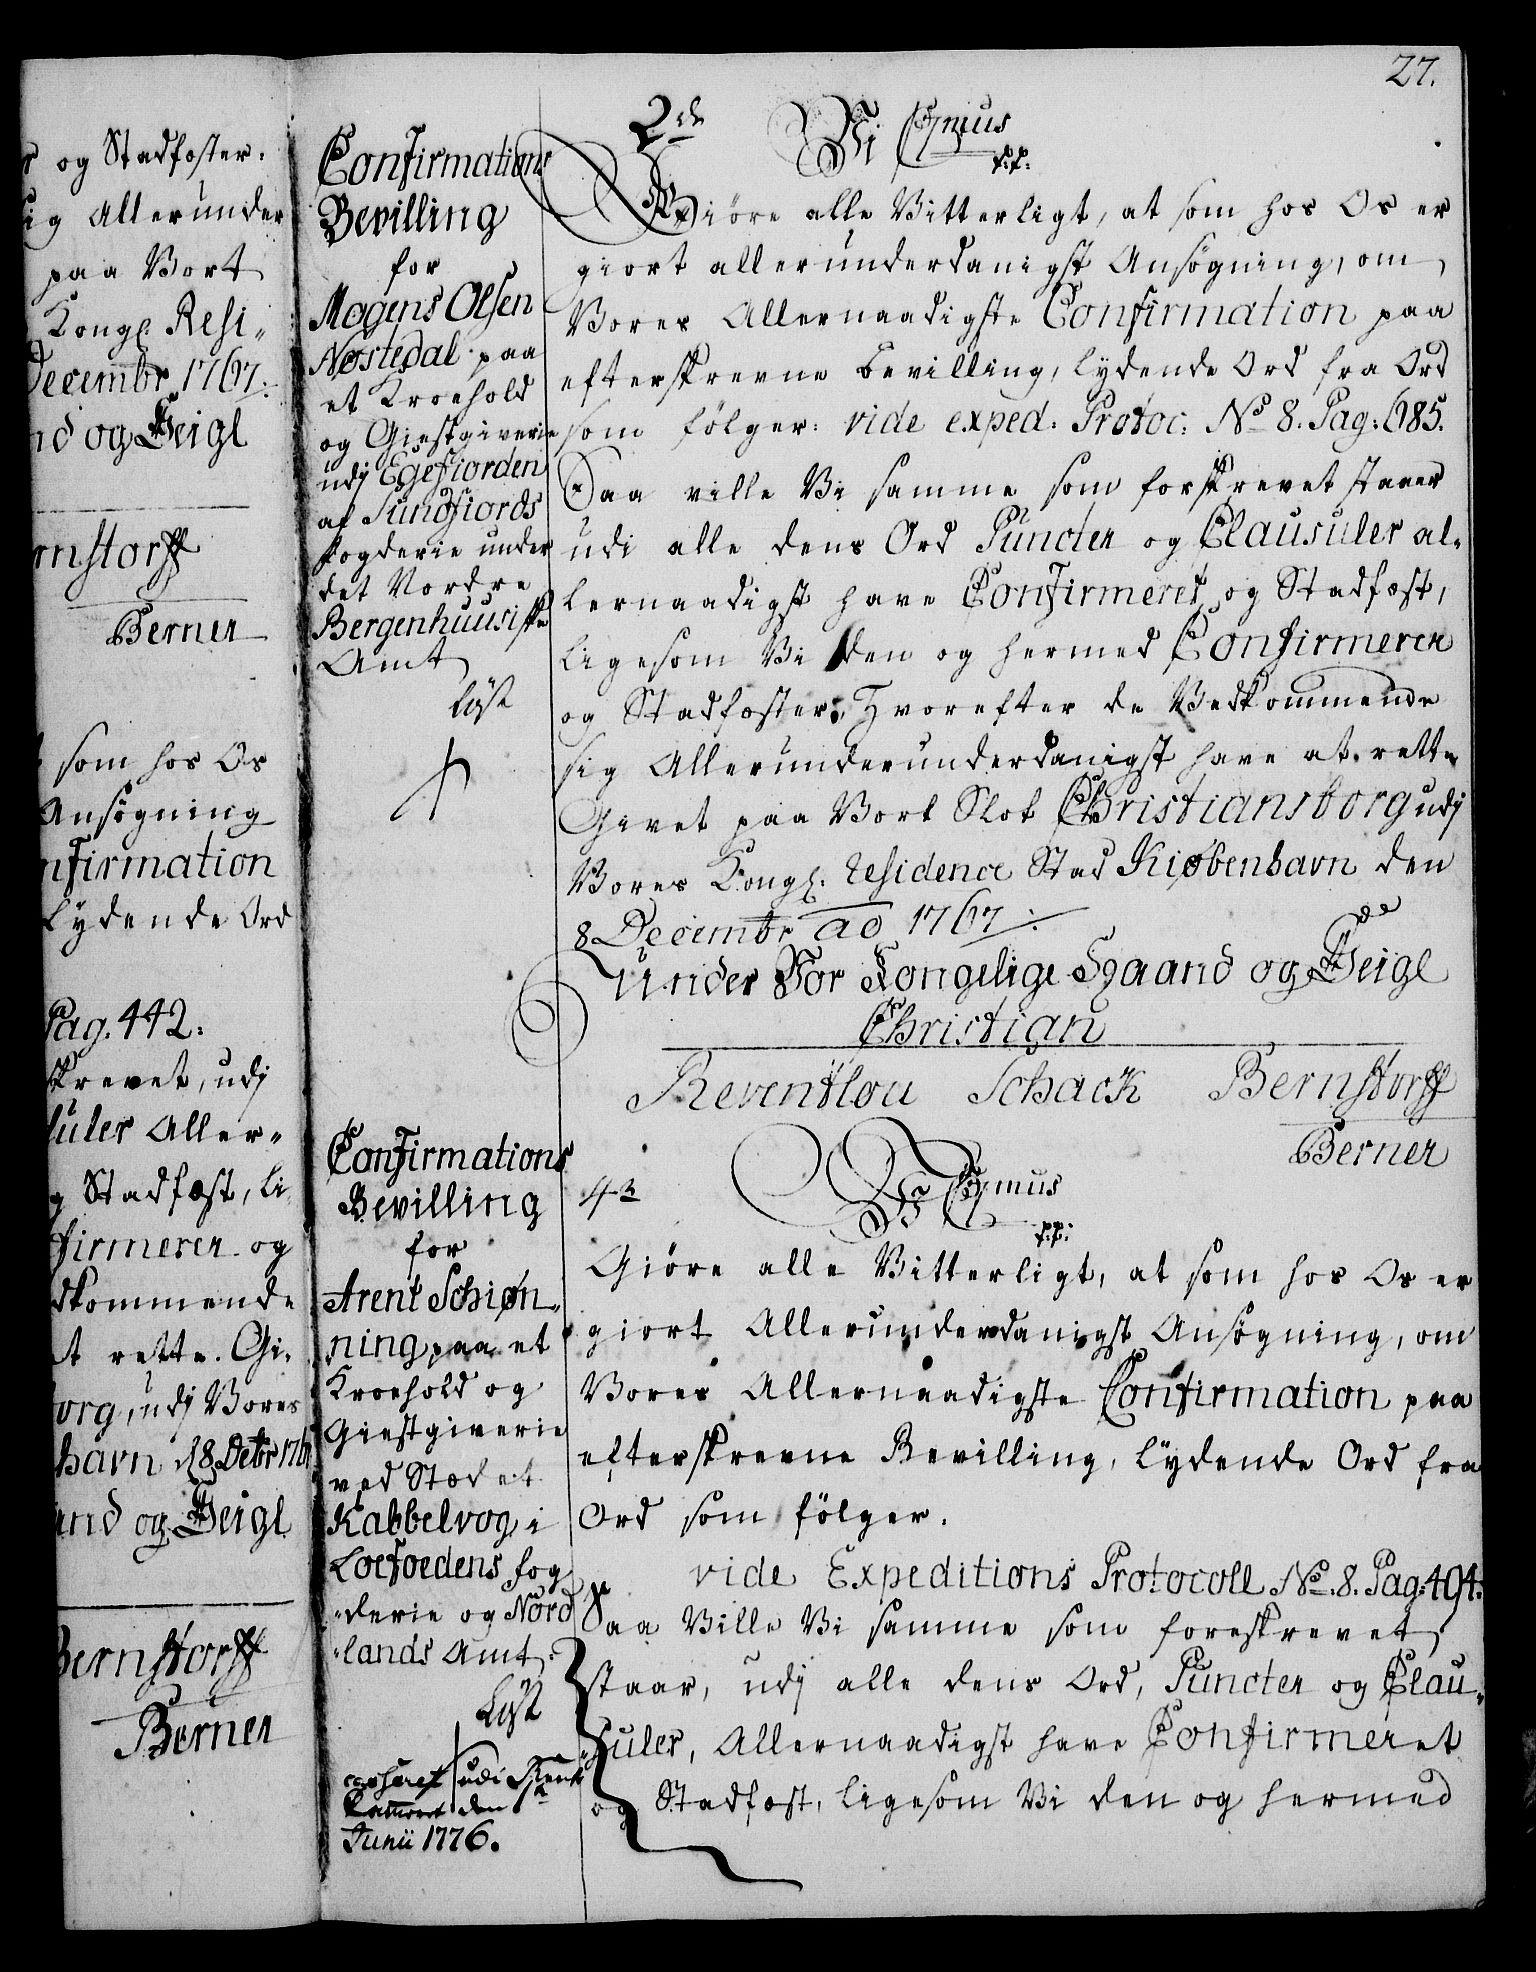 27.
og Stadfæster.
sig Allerunder
paa Vort
Kongl. Resi-
Decembr 1767.
nd og Seigl
rnstorff
Berner
som hos Os
Ansögning
nfirmation
lydende Ord
Pag. 442:
skrevet, udj
suler Aller-
g Stadfæst, li
firmerer og
dkommende
at rette. Gi-
org, udj Vores
havn d 8 Decbr 1767
and og Seigl
Bernstorff
Berner
Confirmations
Bevilling
for
Mogens Olsen
Nøstedal paa
et Kroehold
og Giestgiverie
udj Egefiorden
af Sundfiords
fogderie under
det Nordre
Bergenhuusiske
Amt
löst
2de Vi C 7mus
p.p.
Giöre alle Vitterligt, at som hos Os er
giort allerunderdanigst Ansögning, om
Vores Allernaadigste Confirmation paa
efterskrevne bevilling, lydende Ord fra Ord
som fölger: vide exped: Protoc: No 8. Pag: 685.
Saa ville Vi samme som forskrevet staaer
udi alle dens Ord Puncter og Clausuler al-
lernaadigst have Confirmeret og Stadfæst,
ligesom Vi den og hermed Confirmerer
og Stadfæster; Hvorefter de Vedkommende
sig Allerunderunderdanigst have at rette
Givet paa Vort Slot Christiansborg udj
Vores Kongl. residence Stad Kiøbenhavn den
8 Decembr ao 1767.
Under Vor Kongelige Haand og Seigl
Christian
Reventlou Schack Bernstorff
Berner
Confirmations
Bevilling
for
Arent Schiøn-
ning paa et
Kroehold og
Giestgiverie
ved Stædet
Kabbelvog i
Loefoedens fog
-derie og Nord
-lands Amt.
Löst
casseret udi Rente
kammeret den
Junii 1776.
Vi C 7mus
p.p.
Giöre alle Vitterligt, at som hos Os er
giort Allerunderdanigst Ansögning, om
Vores Allernaadigste Confirmation paa
efterskrevne Bevilling, lydende Ord fra
Ord som fölger.
vide Expeditions Protocoll No. 8. Pag: 494.
Saa Ville Vi samme som foreskrevet
staar, udj alle dens Ord, Puncter og Clau-
suler, Allernaadigst have Confirmeret
og Stadfæst, ligesom Vi den og hermed